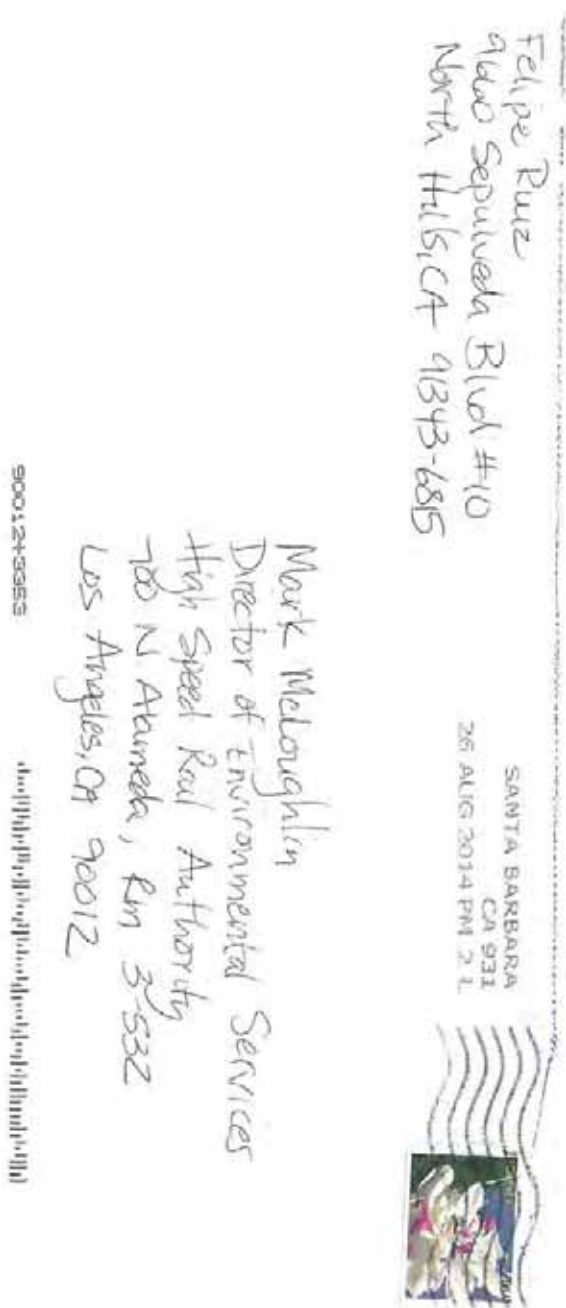 Felipe Ruiz
9660 Sepulveda Blvd #10
North Hills, CA 91343-6815
SANTA BARBARA
CA 931
26 AUG 2014 PM 2 L
Mark McLoughlin
Director of Environmental Services
High Speed Rail Authority
700 N Alameda, Rm 3-532
Los Angeles, CA 90012
90012+3353